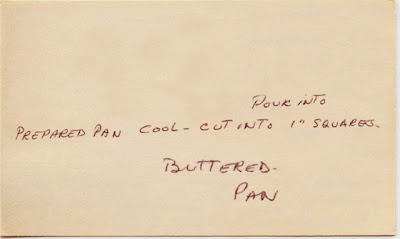 POUR INTO
PREPARED PAN COOL - CUT INTO 1" SQUARES.
BUTTERED.
PAN